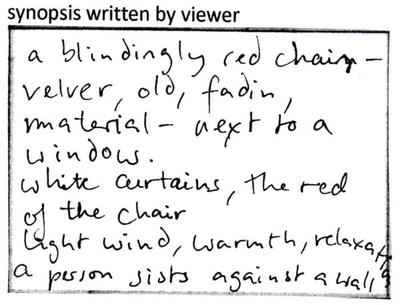 synopsis written by viewer
a blindingly red chair –
velver, old, fadin,
material – next to a
window.
white curtains, the red
of the chair
light wind, warmth, relaxation
a person sists against a wall